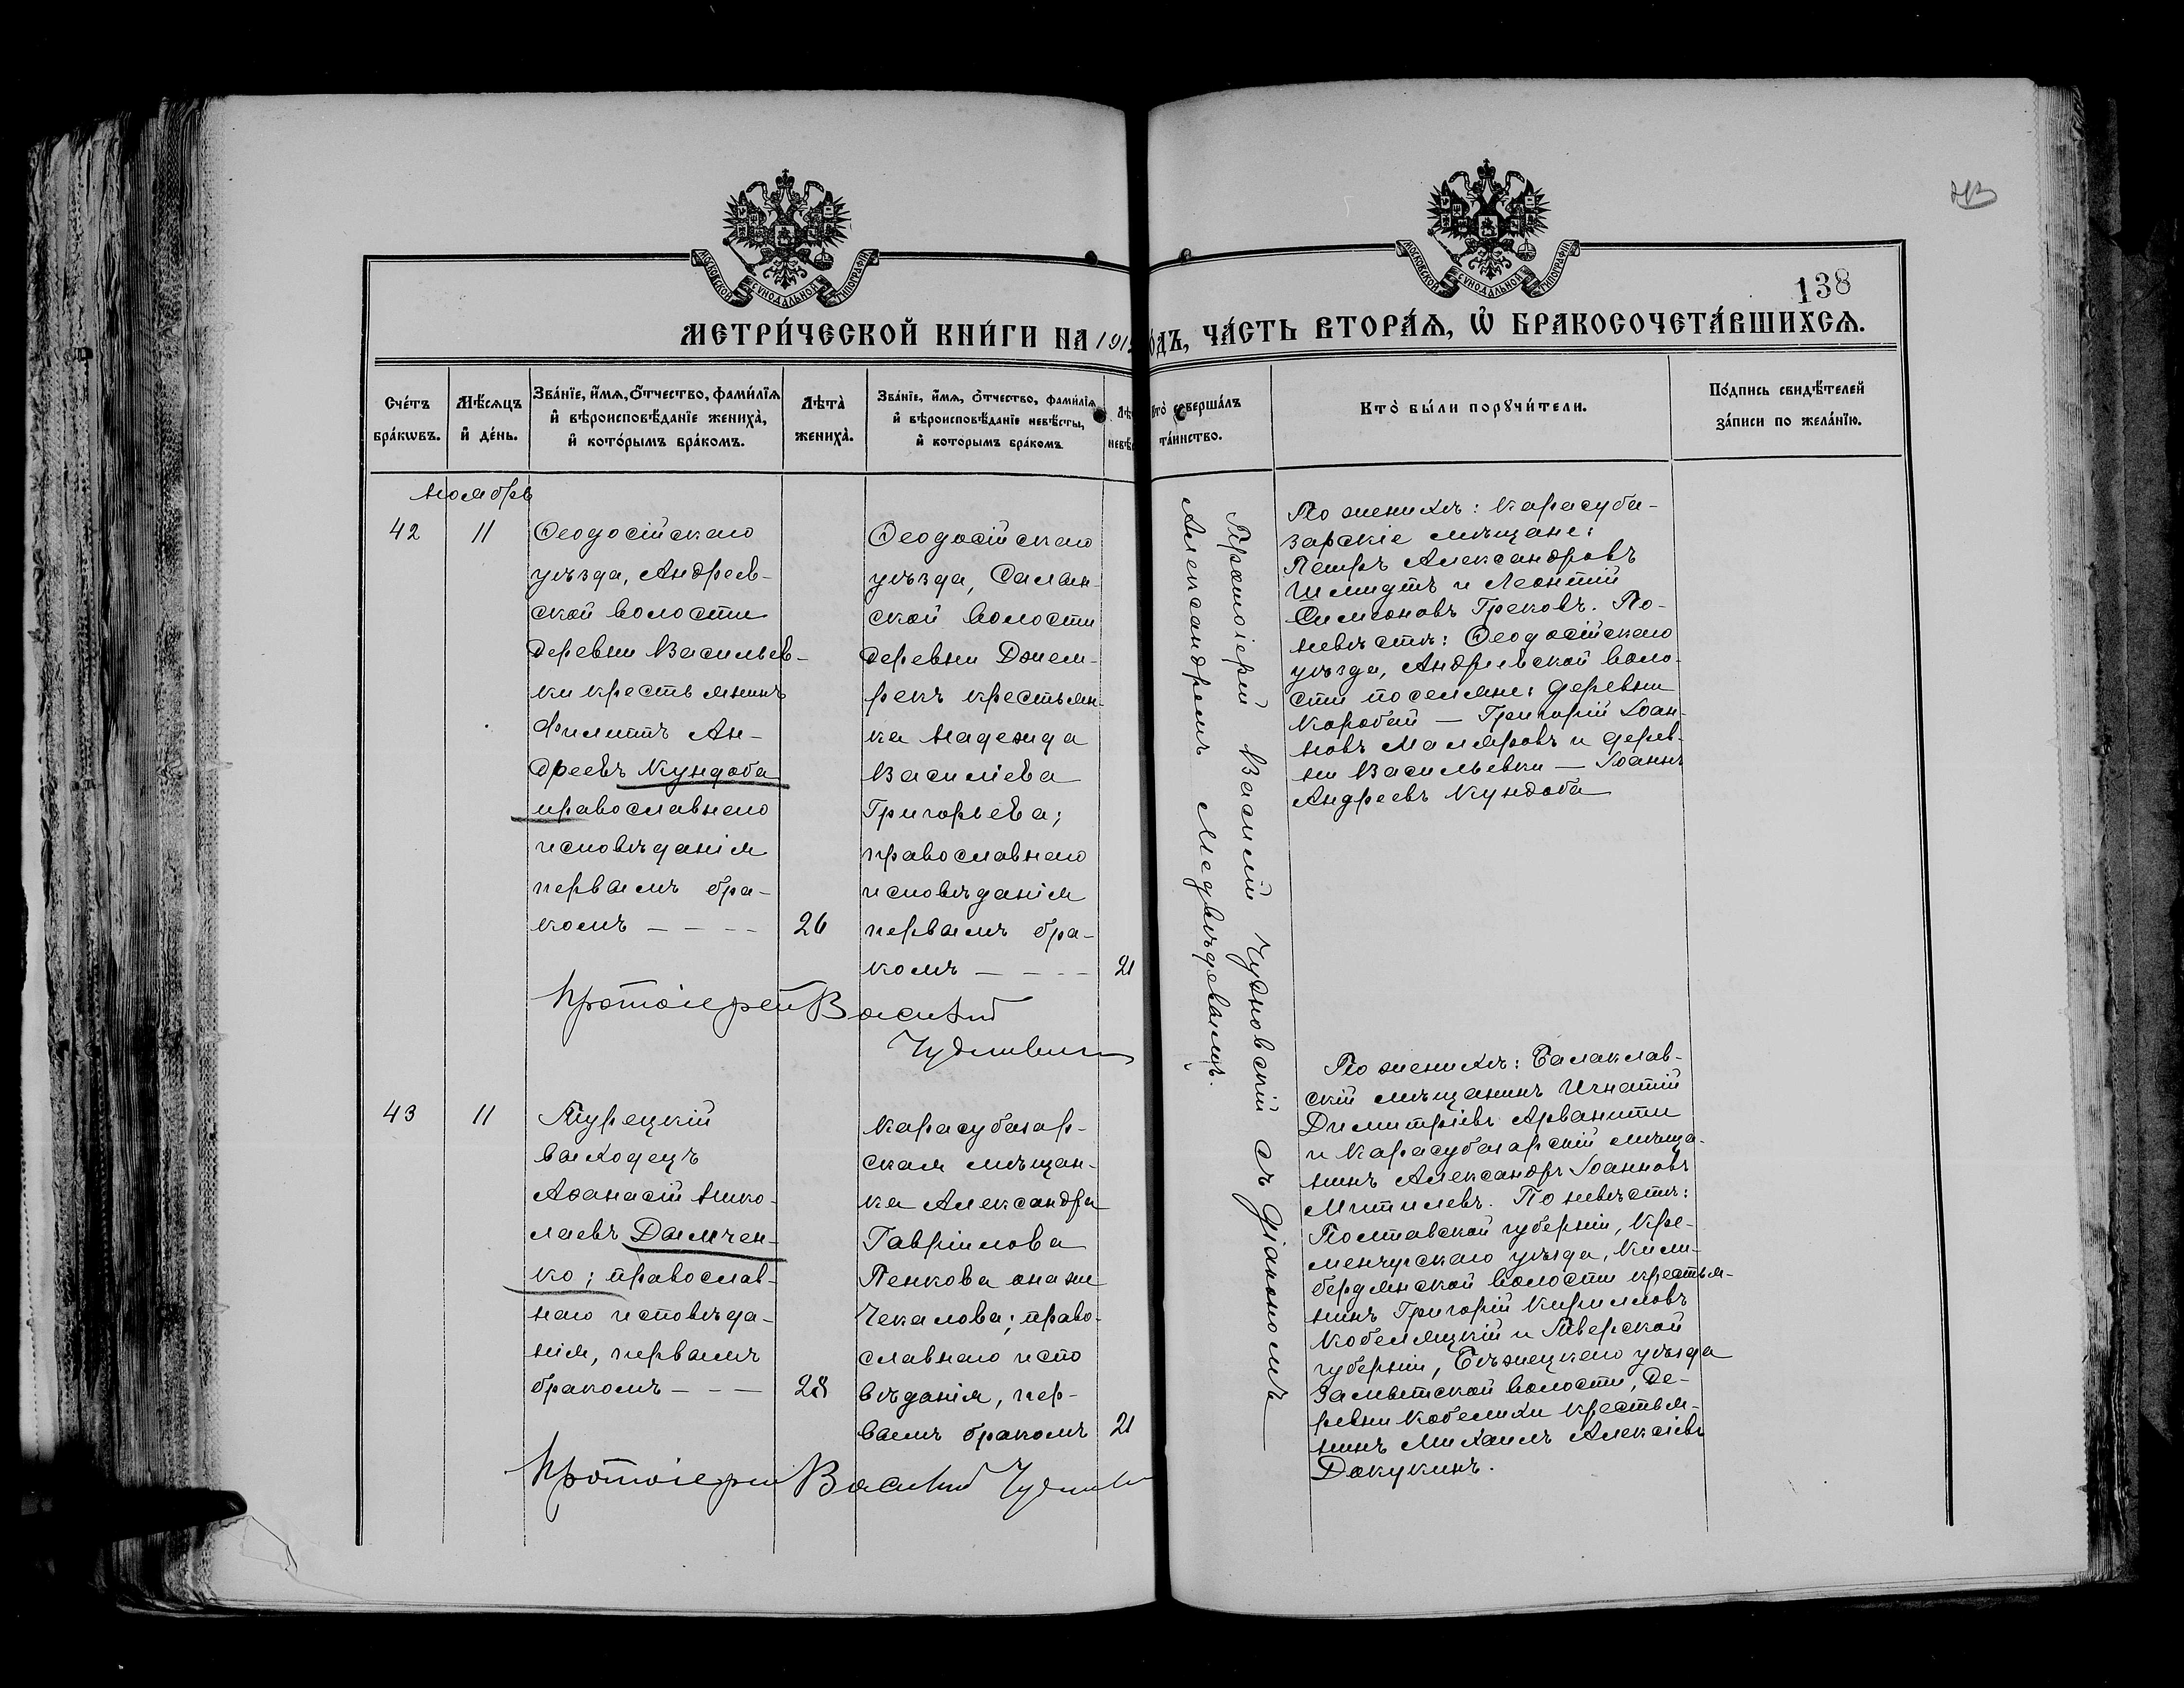 МОСКОВСКОЙ СѴНОДАЛЬНОЙ ТИПОГРАФІИ
МОСКОВСКОЙ СѴНОДАЛЬНОЙ ТИПОГРАФІИ
138
МЕТРИ́ЧЕСКОЙ КНИ́ГИ НА 191
О́ДЪ, ЧА́СТЬ ВТОРА́Ѧ, Ѡ҆ БРАКОСОЧЕТА́ВШИХСѦ.
Сче́тъ бра́кѡвъ.
Мѣ́сѧцъ и҆ де́нь.
Зва́нїе, и҆́мѧ, ѻ҆́тчество, фами́лїѧ и҆ вѣроисповѣ́данїе жениха̀, и҆ кото́рымъ бра́комъ.
Лѣта̀ жениха̀.
Зва́нїе, и҆́мѧ, ѻ҆́тчество, фами́лїѧ и҆ вѣроисповѣ́данїе невѣ́сты, и҆ кото́рымъ бра́комъ.
Кто̀ соверша́лъ та́инство.
Кто̀ бы́ли порꙋчи́тели.
По́дпись свидѣ́телей за́писи по жела́нїю.
Ноябрь
42
11
Ѳеодосійскаго
уѣзда, Андреев-
ской волости
деревни Васильев-
ки крестьянинъ
Филиппъ Ан-
дреевъ Кундоба
православнаго
исповѣданія
первымъ бра-
комъ – – – –
26
Ѳеодосійскаго
уѣзда, Салын-
ской волости
деревни Джем-
рекъ крестьян-
ка Надежда
Василіева
Григорьева;
православнаго
исповѣданія
первымъ бра-
комъ – – – –
21
Протоіерей Василій
Чудновскій
Протоіерей Василій Чудновскій съ діакономъ
Александромъ Медвѣдевымъ.
По женихѣ: Карасуба-
зарскіе мѣщане:
Петръ Александровъ
Шмидтъ и Леонтій
Симеоновъ Грековъ. По
невѣстѣ: Ѳеодосійскаго
уѣзда, Андреевской воло-
сти поселяне: деревни
Коробей — Григорій Іоан-
новъ Маляровъ и дерев-
ни Васильевки — Іоаннъ
Андреевъ Кундоба
43
11
Турецкій
выходецъ
Аѳанасій Нико-
лаевъ Дамчен-
ко; православ-
наго исповѣда-
нія, первымъ
бракомъ – – –
28
Карасубазар-
ская мѣщан-
ка Александра
Гавріилова
Пенкова она же
Чекалова; право-
славнаго испо
вѣданія, пер-
вымъ бракомъ
21
Протоіерей Василій
По женихѣ: Балаклав-
скій мѣщанинъ Игнатій
Димитріевъ Арванити
и Карасубазарскій мѣща-
нинъ Александръ Іоанновъ
Митилевъ. По невѣстѣ:
Полтавской губерніи, Кре-
менчугскаго уѣзда, Кили-
бердянской волости крестья-
нинъ Григорій Кирилловъ
Кобеляцкій и Тверской
губерніи, Бѣжецкаго уѣзда
волости, де-
ревни Кобелихи крестья-
нинъ Михаилъ Алексіевъ
Докукинъ.